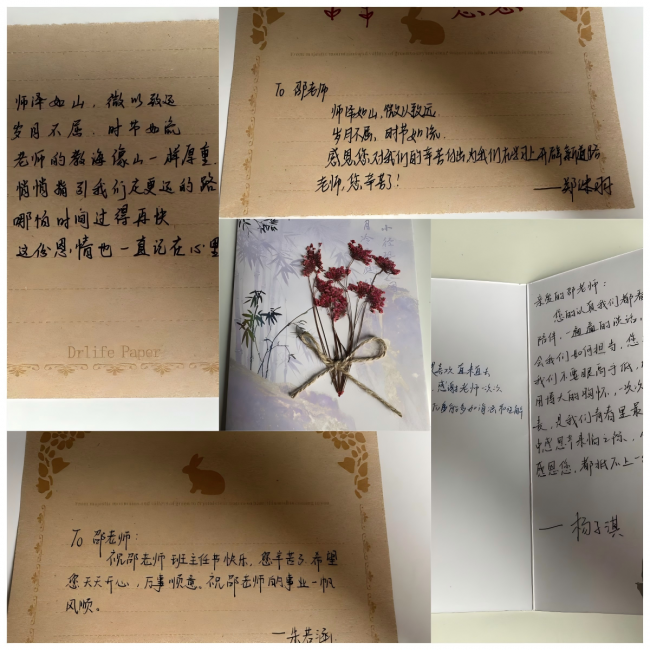 师泽如山，微以致远
岁月不居，时节如流
老师的教诲像山一样厚重
悄悄指引我们走更远的路
哪怕时间过得再快
这份恩情也一直记在心里
Drlife Paper
To 邵老师
师泽如山，微以致远
岁月不居，时节如流.
感恩您对我们的辛苦付出为我们在学习上开辟新道路
老师，您辛苦了！
To 邵老师：
祝邵老师班主任节快乐，您辛苦了希望
您天天开心，万事顺意。祝邵老师的事业一帆
风顺。
—朱若涵
喜欢直来直去
感谢老师一次次
亲爱的邵老师：
您的认真我们都看
陪伴，一遍遍的谈话，
会我们如何担当，您
我们不要眼高手低，
用博大的胸怀，一次次
长，是我们青春里最
感恩您，都抵不上一
— 杨子淇